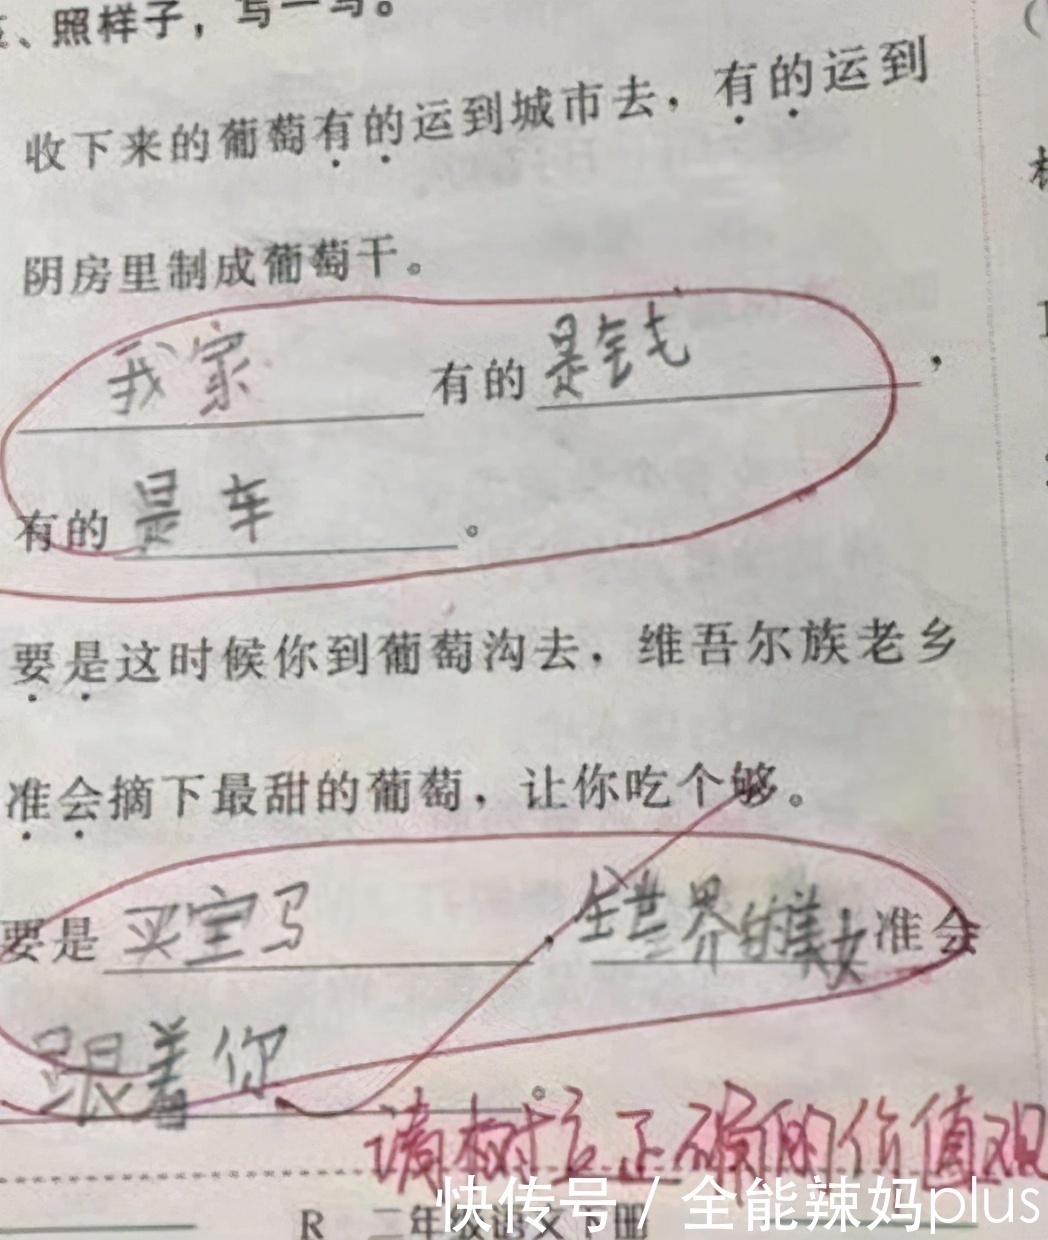 、照样子，写一写。
收下来的葡萄有的运到城市去，有的运到
阴房里制成葡萄干。
我家有的是钱，
有的是车。
要是这时候你到葡萄沟去，维吾尔族老乡
准会摘下最甜的葡萄，让你吃个够。
要是买宝马，全世界的美女准会
跟着你。
请树立正确的价值观
快传号/全能辣妈plus
R 二年级语文下册